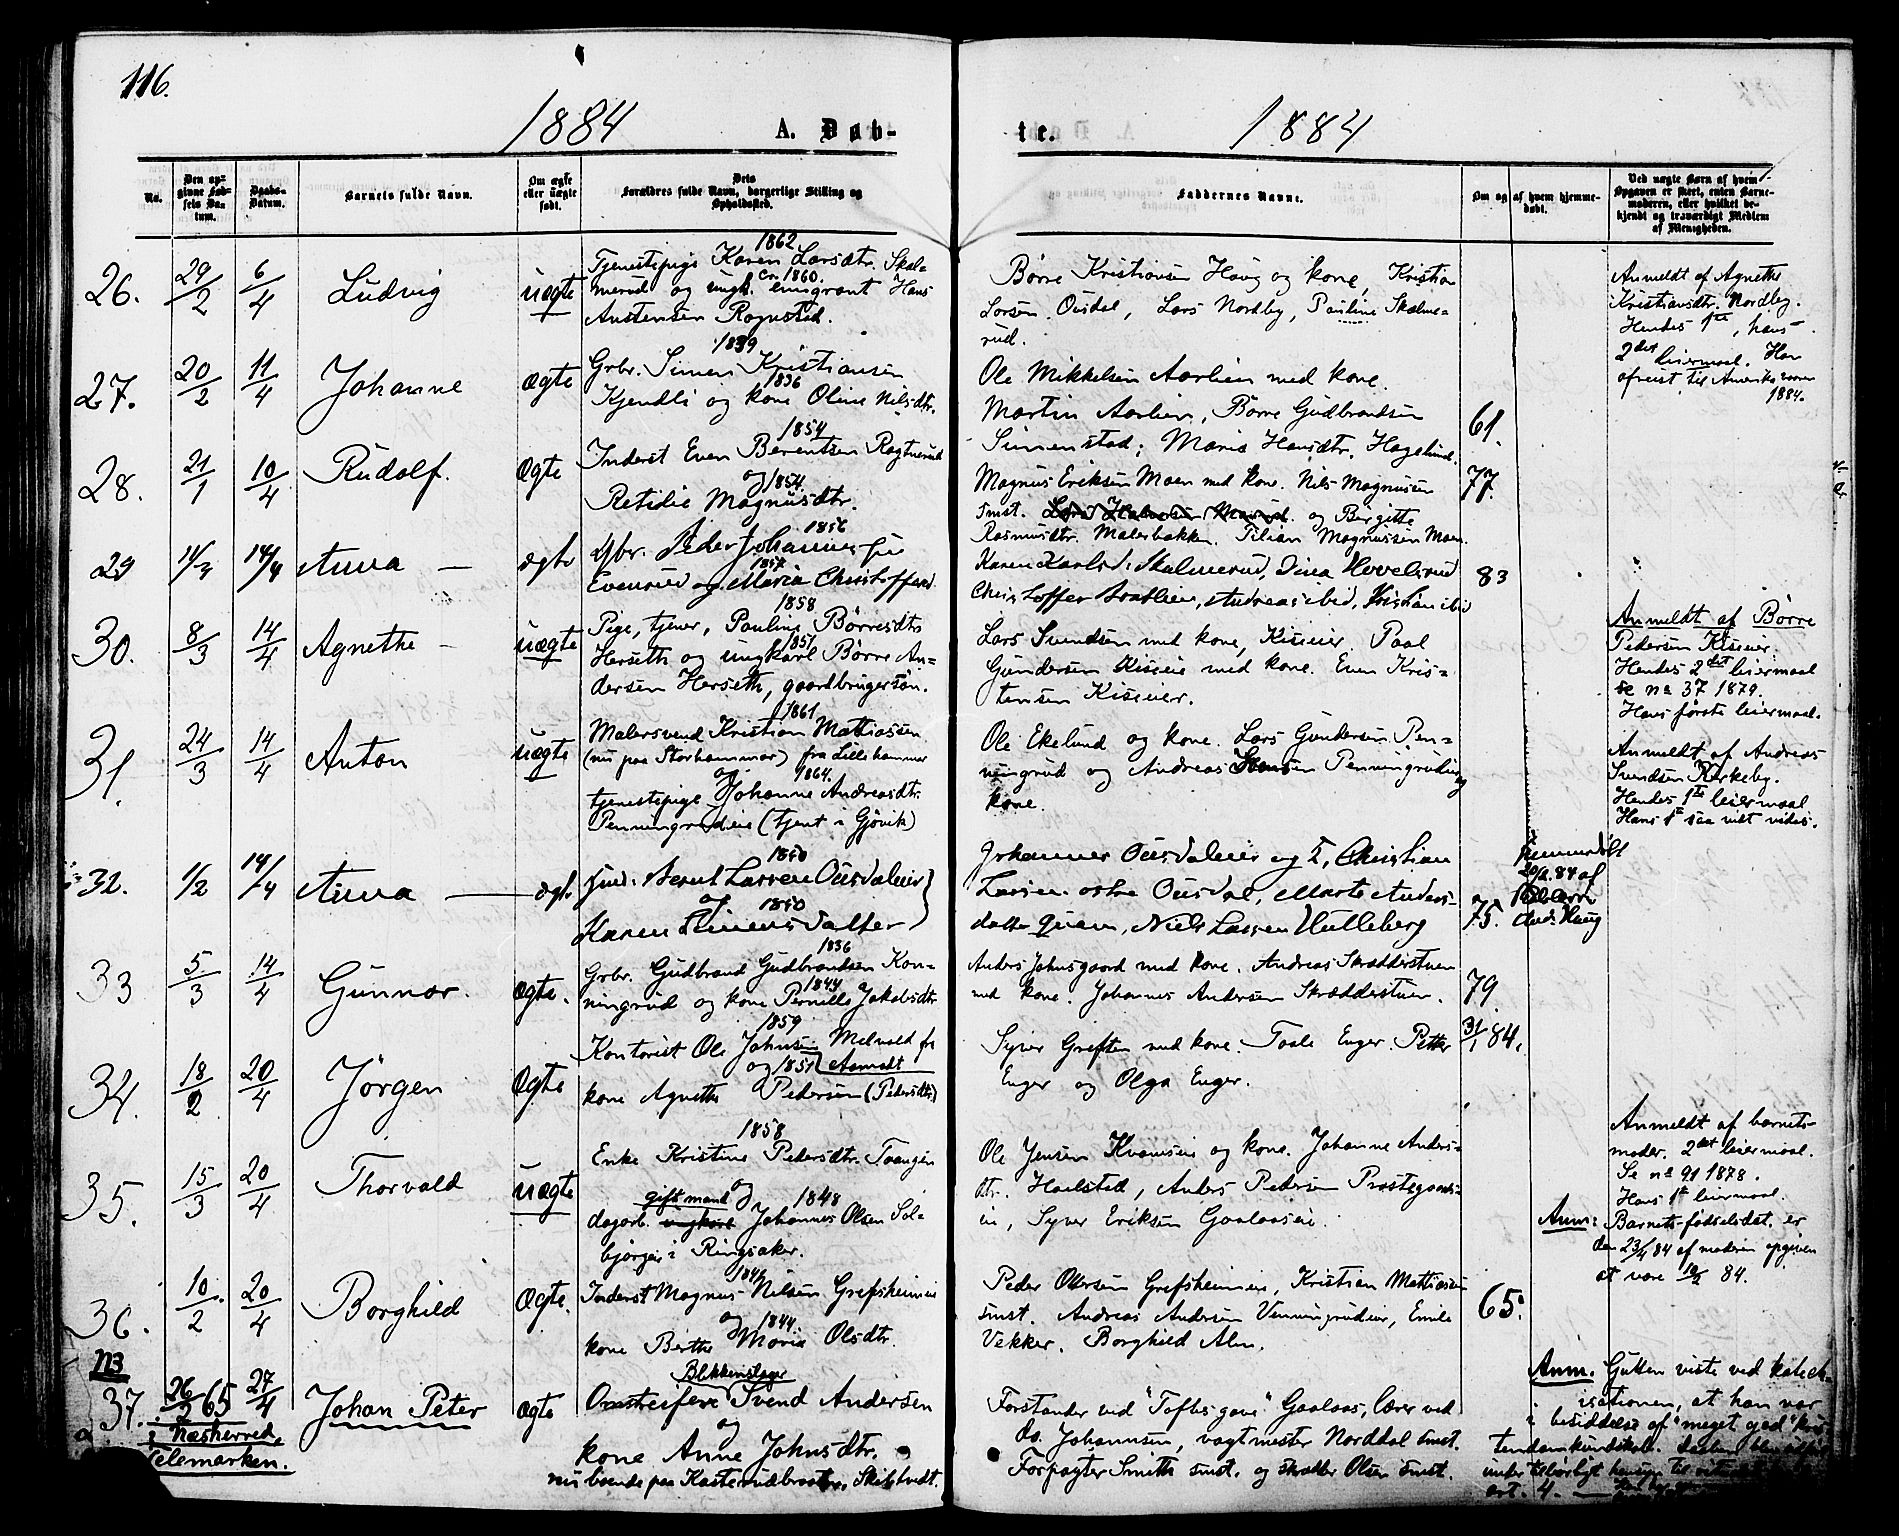 116.
1884
A. Døb-
No.
Den op-
givne Fød-
sels Da-
tum.
Daabs-
Datum.
Barnets fulde Navn.
Om ægte
eller uægte
født.
Dets
Forældres fulde Navn, borgerlige Stilling og
Opholdssted.
26.
29/2
6/4
Ludvig
uægte
1862
Tjenestepige Karen Larsdtr. Skal-
Cr. 1860.
merud og ungk. emigrant Hans
Austensen Rognstad.
27.
20/2
11/4
Johanne
ægte
1839
Grbr. Simen Kristiansen
1836
Kjendli og kone Oline Nilsdtr.
28.
21/1
10/4
Rudolf.
ægte
1854
Inderst Even Berentsen
og 1854.
Magnusdtr.
29
14/3
14/4
Anna
ægte
1856
Gbr. Peder Johannesen
1857
Evenrud og Maria Christoffersd.
30.
8/3
14/4
Agnethe
uægte
1858
Pige, tjener, Pauline Børresdtr
1851
Herseth og ungkarl Børre An-
dersen Herseth, gaardbrugersøn.
31.
24/3
14/4
Anton
uægte
1861
Malersvend Kristian Mattiassen
(nu paa Storhammer) fra Lillehammer
og 1864.
tjenestepige Johanne Andreasdtr.
Penningrudeie (tjent i Gjøvik)
32.
1/2
14/4
Anna
ægte
1850
Ind. Bernt Larsen Ousdaleie
og 1850
Karen Simensdatter
33
5/3
14/4
Gunnar.
ægte.
1836
Grbr. Gudbrand Gudbrandsen Kon-
1844
ningrud og kone Pernille Jakobsdtr.
34.
18/2
20/4
Jörgen
ægte
1859
Kontorist Ole Johnsen Melvold fr
og 1851 Aamodt
kone Agnethe Pedersen (Pedersdtr.)
35.
15/3
20/4
Thorvald
uægte
1858
Enke Kristine Pedersdtr. Taangen
gift mand og 1848
dagarb. ungkarl Johannes Olsen Sol-
bjørgeie i Ringsaker.
36.
10/2
20/4
Borghild
ægte.
Inderst Magnus Nilsen Grefsheimeie
og 1844.
kone Berthe Maria Olsdtr.
N3
37.
26/2 65
i Næsherred,
Telemarken.
27/4
Johan Peter
ægte
Blikkenslager
Omstreifer Svend Andersen
og
kone Anne Johnsdtr.
nu boende paa Kasterudbraaten, Skibtvedt.
te.
1884
Faddernes Navne.
Om og af hvem hjemme-
døbt.
Ved uægte Børn af hvem
Opgaven er skeet, enten Barne-
moderen, eller hvilket be-
kjendt og troværdigt Medlem
af Menigheden.
Børre Kristiansen Haug og kone, Kristian
Larsen Ousdal, Lars Nordby, Pauline Skalme-
rud.
Anmeldt af Agnethe
Kristiansdtr. Nordby.
Hendes 1ste, hans
2det leiermaal. Han
afreist til Amerika vaaren
1884.
Ole Mikkelsen Aarlien med kone.
Martin Aarlien, Børre Gudbrandsen
Simenstad; Maria Hansdtr. Hagelund.
61.
Magnus Eriksen Moen med kone. Nils Magnusen
smst. og Birgitte
Rasmusdtr. Malerbakken. Magnussen Moen.
77.
Karen Karlsd. Skalmerud, Dina Hovelsrud
Christoffer Aralien, Andreas ibid, Kristian ibid
83
Lars Svendsen med kone, Kiseeie. Paal
Gundersen Kiseeie med kone. Even Kris-
tensen Kiseeie.
Anmeldt af Børre
Pedersen Kiseeie.
Hendes 2det leiermaal
se no 37 1879.
Hans første leiermaal.
Ole Ekelund og kone. Lars Gundersen Pen-
ningrud og Andreas Hansen Penningrudeie og
kone.
Anmeldt af Andreas
Svendsen Kirkeby.
Hendes 1ste leiermaal
Hans 1ste saa vidt vides.
Johannes Ousdaleie og H, Christian
Larsen østre Ousdal, Marte Anders-
datter Quam, Niels Larsen Hulleberg
75.
hjemmedøbt
20/2. 84 af
And. Haug
Anders Johnsgaard med kone. Andreas Skrædderstuen
med kone. Johannes Andersen Skrædderstuen.
79
Syver Greften med kone. Taale Enger. Petter
Enger og Olga Enger.
31/1 84.
Ole Jensen Kvameie og kone. Johanne Anders-
dtr. Haelstad, Anders Pedersen Prestegaards-
eie, Syver Eriksen Gaalaaseie.
Anmeldt af barnets
moder. 2det leiermaal.
Se no 91 1878.
Hans 1ste leiermaal.
Anm: Barnets fødselsdat. er
den 23/4 84 af moderen opgiven
at være 84.
Peder Olersen Grefsheimeie, Kristian Mattiassen
smst. Andreas Andersen Venningrudeie, Emile
Vekker. Borghild Alm.
65.
Forstander ved "Toftes gave" Gaalaas, lærer ved
do. Johannsen, vagtmester Norddal smst.
Forpagter Smith smst. og skrædder Olsen smst.
Anm. Gutten viste ved katek-
isationen, at han var
i besiddelse af "meget god" kris-
tendomskundskab.
under tilbørligt hensyn til
art. 4.